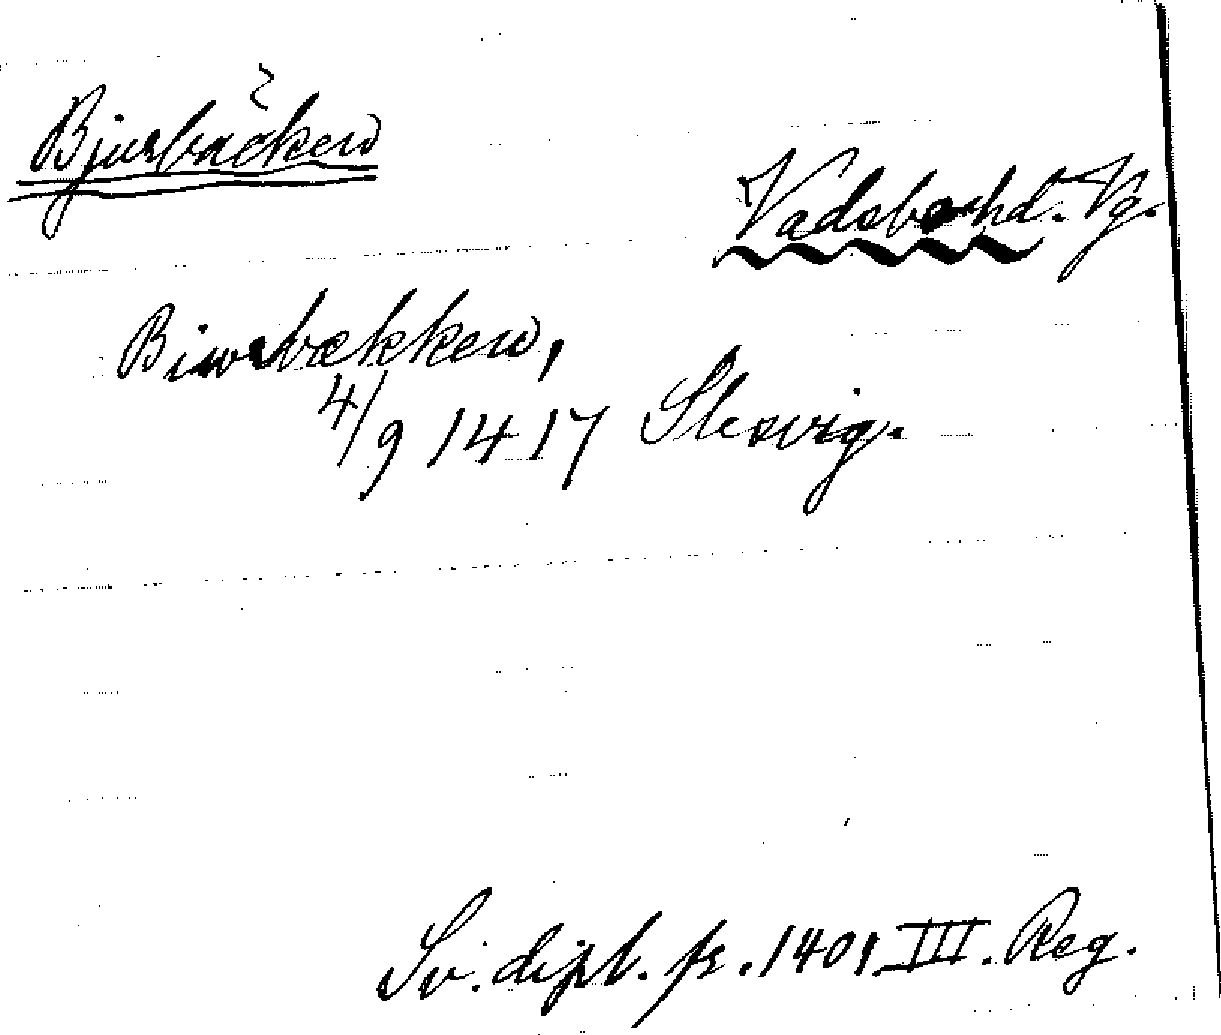 Bjurbäcken
Vadsbo hd. Vg.
Biwrbækken,
4/9 1417 Slesvig.
Sv. dipl. fr. 1401 III. Reg.